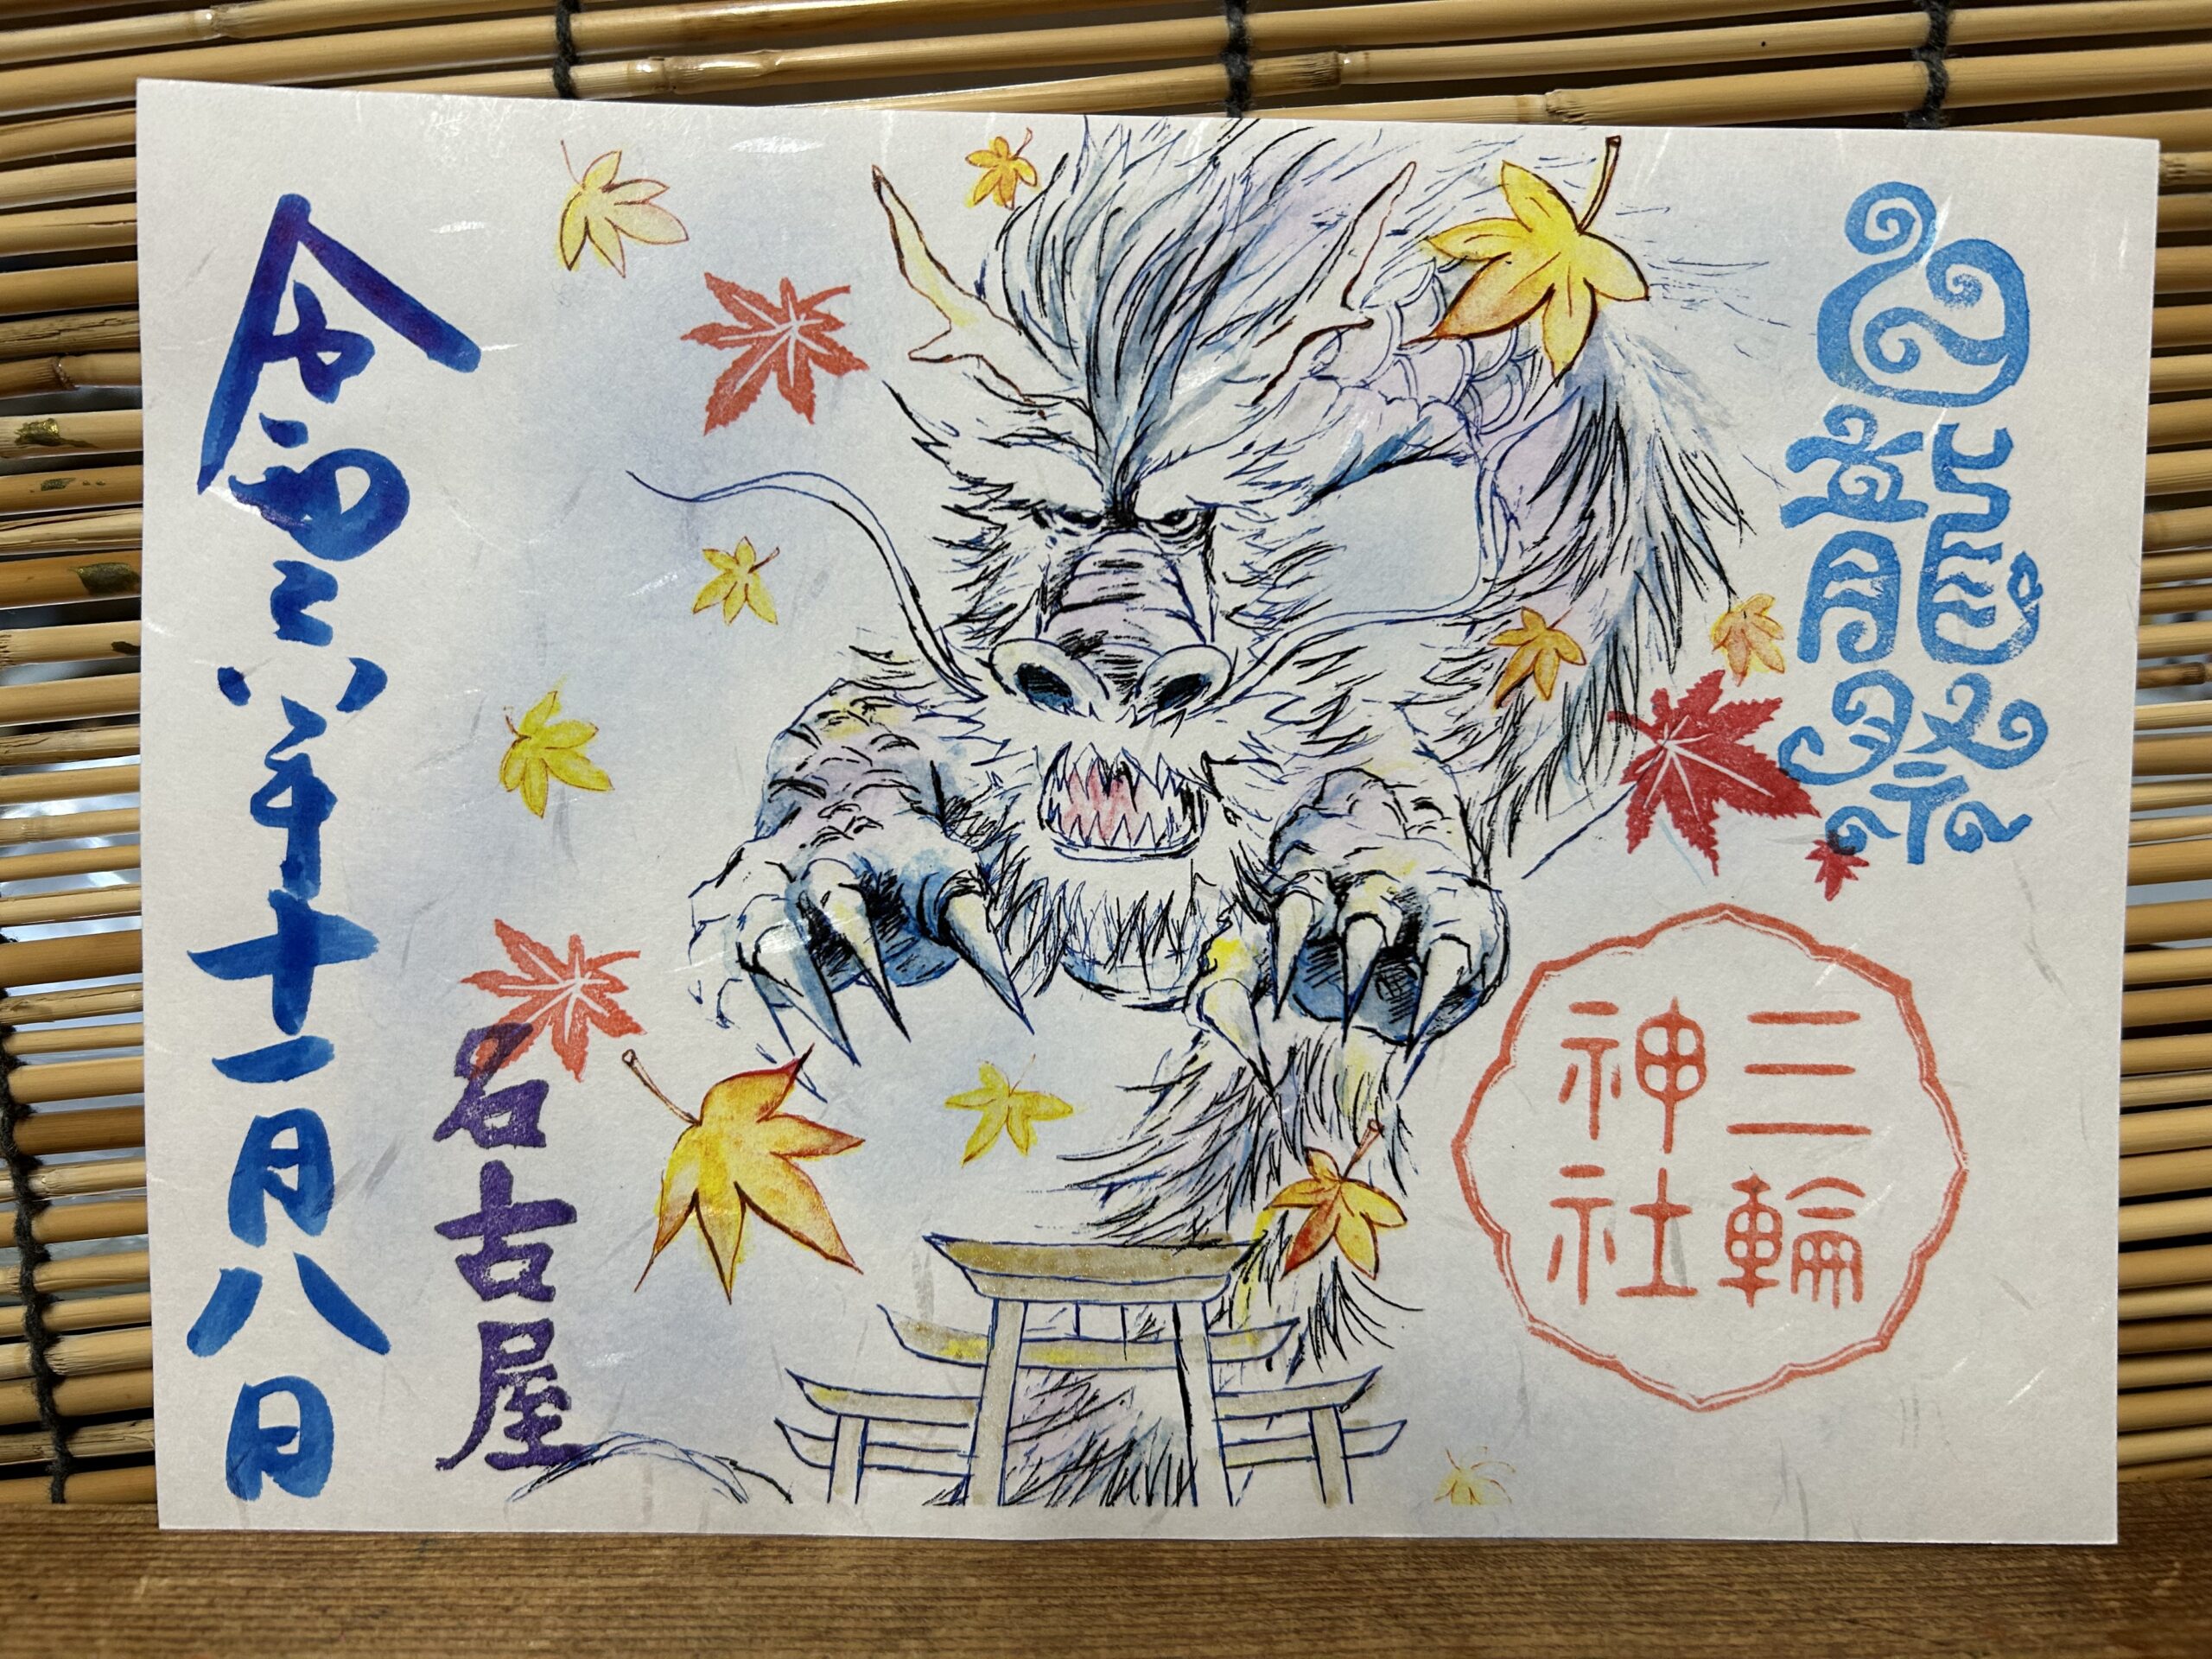 三輪
神社
名古屋
令和六年十一月八日